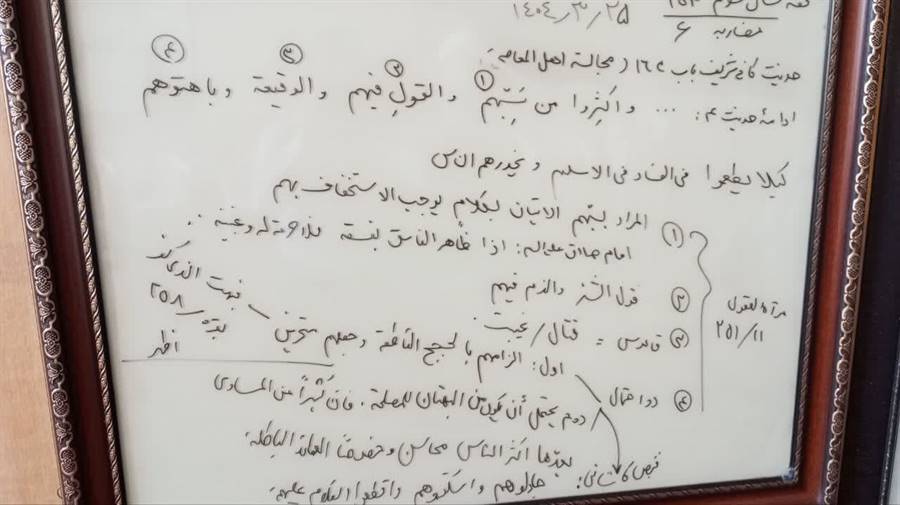 ۱۴۰۴/۳/۲۵
مضاربه ۶
حدیث کافی شریف باب ۱۶۴ (مجالسة اهل المعاصی)
ادامۀ حدیث ۴: ... و اکثِروا من سَبّهم ① والقولِ فیهم ② والوقیعة ③ و باهتوهم ④
کیلا یطمعوا فی الفساد فی الاسلام و یحذرهم الناس
① المراد بسبّهم الاتیان بکلام یوجب الاستخفاف بهم
امام صادق علیه السلام: اذا ظاهر الفاسق بفسقه فلا حرمة له و غیبة ..
② قول الشر والذم فیهم
③ قاموس = قتال / غیبت
مرآة العقول ۱۱/۲۵۱
④ دو احتمال
اول: الزامهم بالحجج القاطعة و جعلهم متحیرین
فبهت الذی کفر
بقره / ۲۵۸
اظهر
دوم یحتمل أن یکون من البهتان للمصلحة، فان کثیراً من المساوی
یعدّها اکثر الناس محاسن و خصوصاً العقائد الباطلة.
فیض کاشانی: جادلوهم و اسکتوهم و اقطعوا الکلام علیهم.